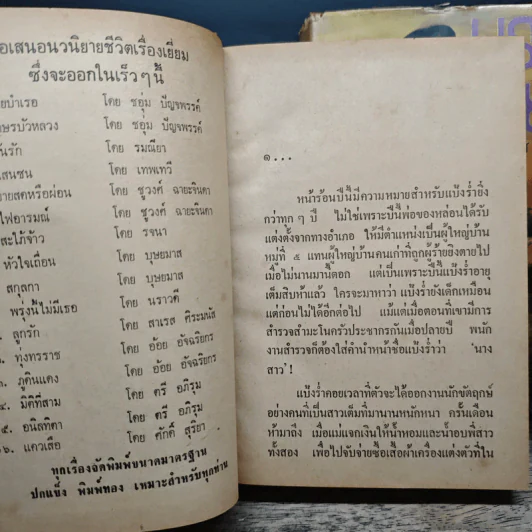 อเสนอนวนิยายชีวิตเรื่องเยี่ยม
ซึ่งจะออกในเร็วๆนี้
ยบำเรอ โดย ชอุ่ม ปัญจพรรค์
ษรบัวหลวง โดย ชอุ่ม ปัญจพรรค์
นรัก โดย รมณียา
แสนซน โดย เทพเทวี
ยสดหรือผ่อน โดย ชูวงศ์ ฉายะจินดา
ไฟอารมณ์ โดย ชูวงศ์ ฉายะจินดา
สะใภ้จ้าว โดย รจนา
หัวใจเถื่อน โดย บุษยมาส
สกุลกา โดย บุษยมาส
พรุ่งนี้ไม่มีเธอ โดย นราวดี
ลูกรัก โดย สาเรส ศิระมนัส
ทุ่งทรราช โดย อ้อย อัจฉริยกร
๓. ภูตินแดง โดย อ้อย อัจฉริยกร
๔. มิติที่สาม โดย ตรี อภิรุม
๕. อนิลทิตา โดย ตรี อภิรุม
๖. แควเสือ โดย ศักดิ์ สุริยา
ทุกเรื่องจัดพิมพ์ขนาดมาตรฐาน
ปกแข็ง พิมพ์ทอง เหมาะสำหรับทุกท่าน
๑...
หน้าร้อนปีนี้มีความหมายสำหรับแบ้งร่ำยิ่ง
กว่าทุกๆปี ไม่ใช่เพราะปีนี้พ่อของหล่อนได้รับ
แต่งตั้งจากทางอำเภอ ให้มีตำแหน่งเป็นผู้ใหญ่บ้าน
หมู่ที่ ๕ แทนผู้ใหญ่บ้านคนเก่าที่ถูกผู้ร้ายยิงตายไป
เมื่อไม่นานมานี้ดอก แต่เป็นเพราะปีนี้แบ้งร่ำอายุ
เต็มสิบห้าแล้ว ใครจะมาหาว่า แบ้งร่ำยังเด็กเหมือน
แต่ก่อนไม่ได้อีกต่อไป แม้แต่เมื่อตอนที่เขามีการ
สำรวจสำมะโนครัวประชากรกันเมื่อปลายปี พนัก
งานสำรวจก็ต้องใส่คำนำหน้าชื่อแบ้งร่ำว่า 'นาง
สาว'!
แบ้งร่ำคอยเวลาที่ตัวจะได้ออกงานนักขัตฤกษ์
อย่างคนที่เป็นสาวเต็มที่มานานหนักหนา ครั้นเดือน
ห้ามาถึง เมื่อแม่แจกเงินให้น้ำหอมและน้ำอบพี่สาว
ทั้งสอง เพื่อไปจับจ่ายซื้อเสื้อผ้าเครื่องแต่งตัวที่ใน